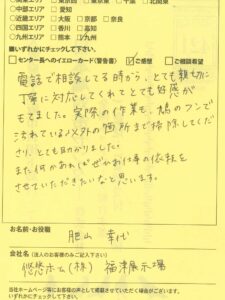 ■中部エリア □愛知
■近畿エリア □大阪 □京都 □奈良
■四国エリア □香川 □高知
■九州エリア □熊本 ☑九州
※いずれかにチェックして下さい。
□センター長へのイエローカード(警告書) ☑ご感想 □ご相談希望
電話で相談してる時から、とても親切に
丁寧に対応してくれてとても好感が
もてました。実際の作業も、鳩のフンで
汚れている以外の箇所まで掃除してくだ
さり、とても助かりました。
また何かあればぜひお仕事の依頼を
させていただきたいなと思います。
お名前・お役職
肥山 幸代
会社名 (法人のお客様のみご記入下さい)
悠悠ホーム(株) 福津展示場
当社ホームページ等にお客様の声として掲載させていただく場合がございます。
※いずれかにチェックして下さい。